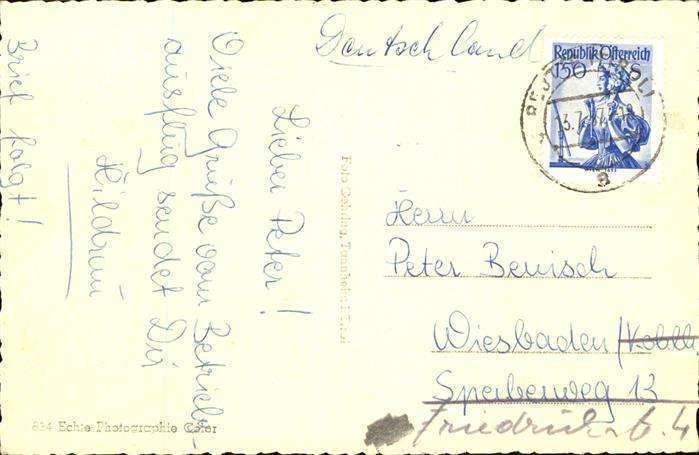 Deutschland
Republik Österreich
150 S
Lieber Peter!
Viele Grüße vom Betriebs-
ausflug sendet Dir
Hildrun
Brief folgt!
Herrn
Peter Benisch
Wiesbaden/
Sperberweg 13
Friedrich 4
834 Echte Photographie